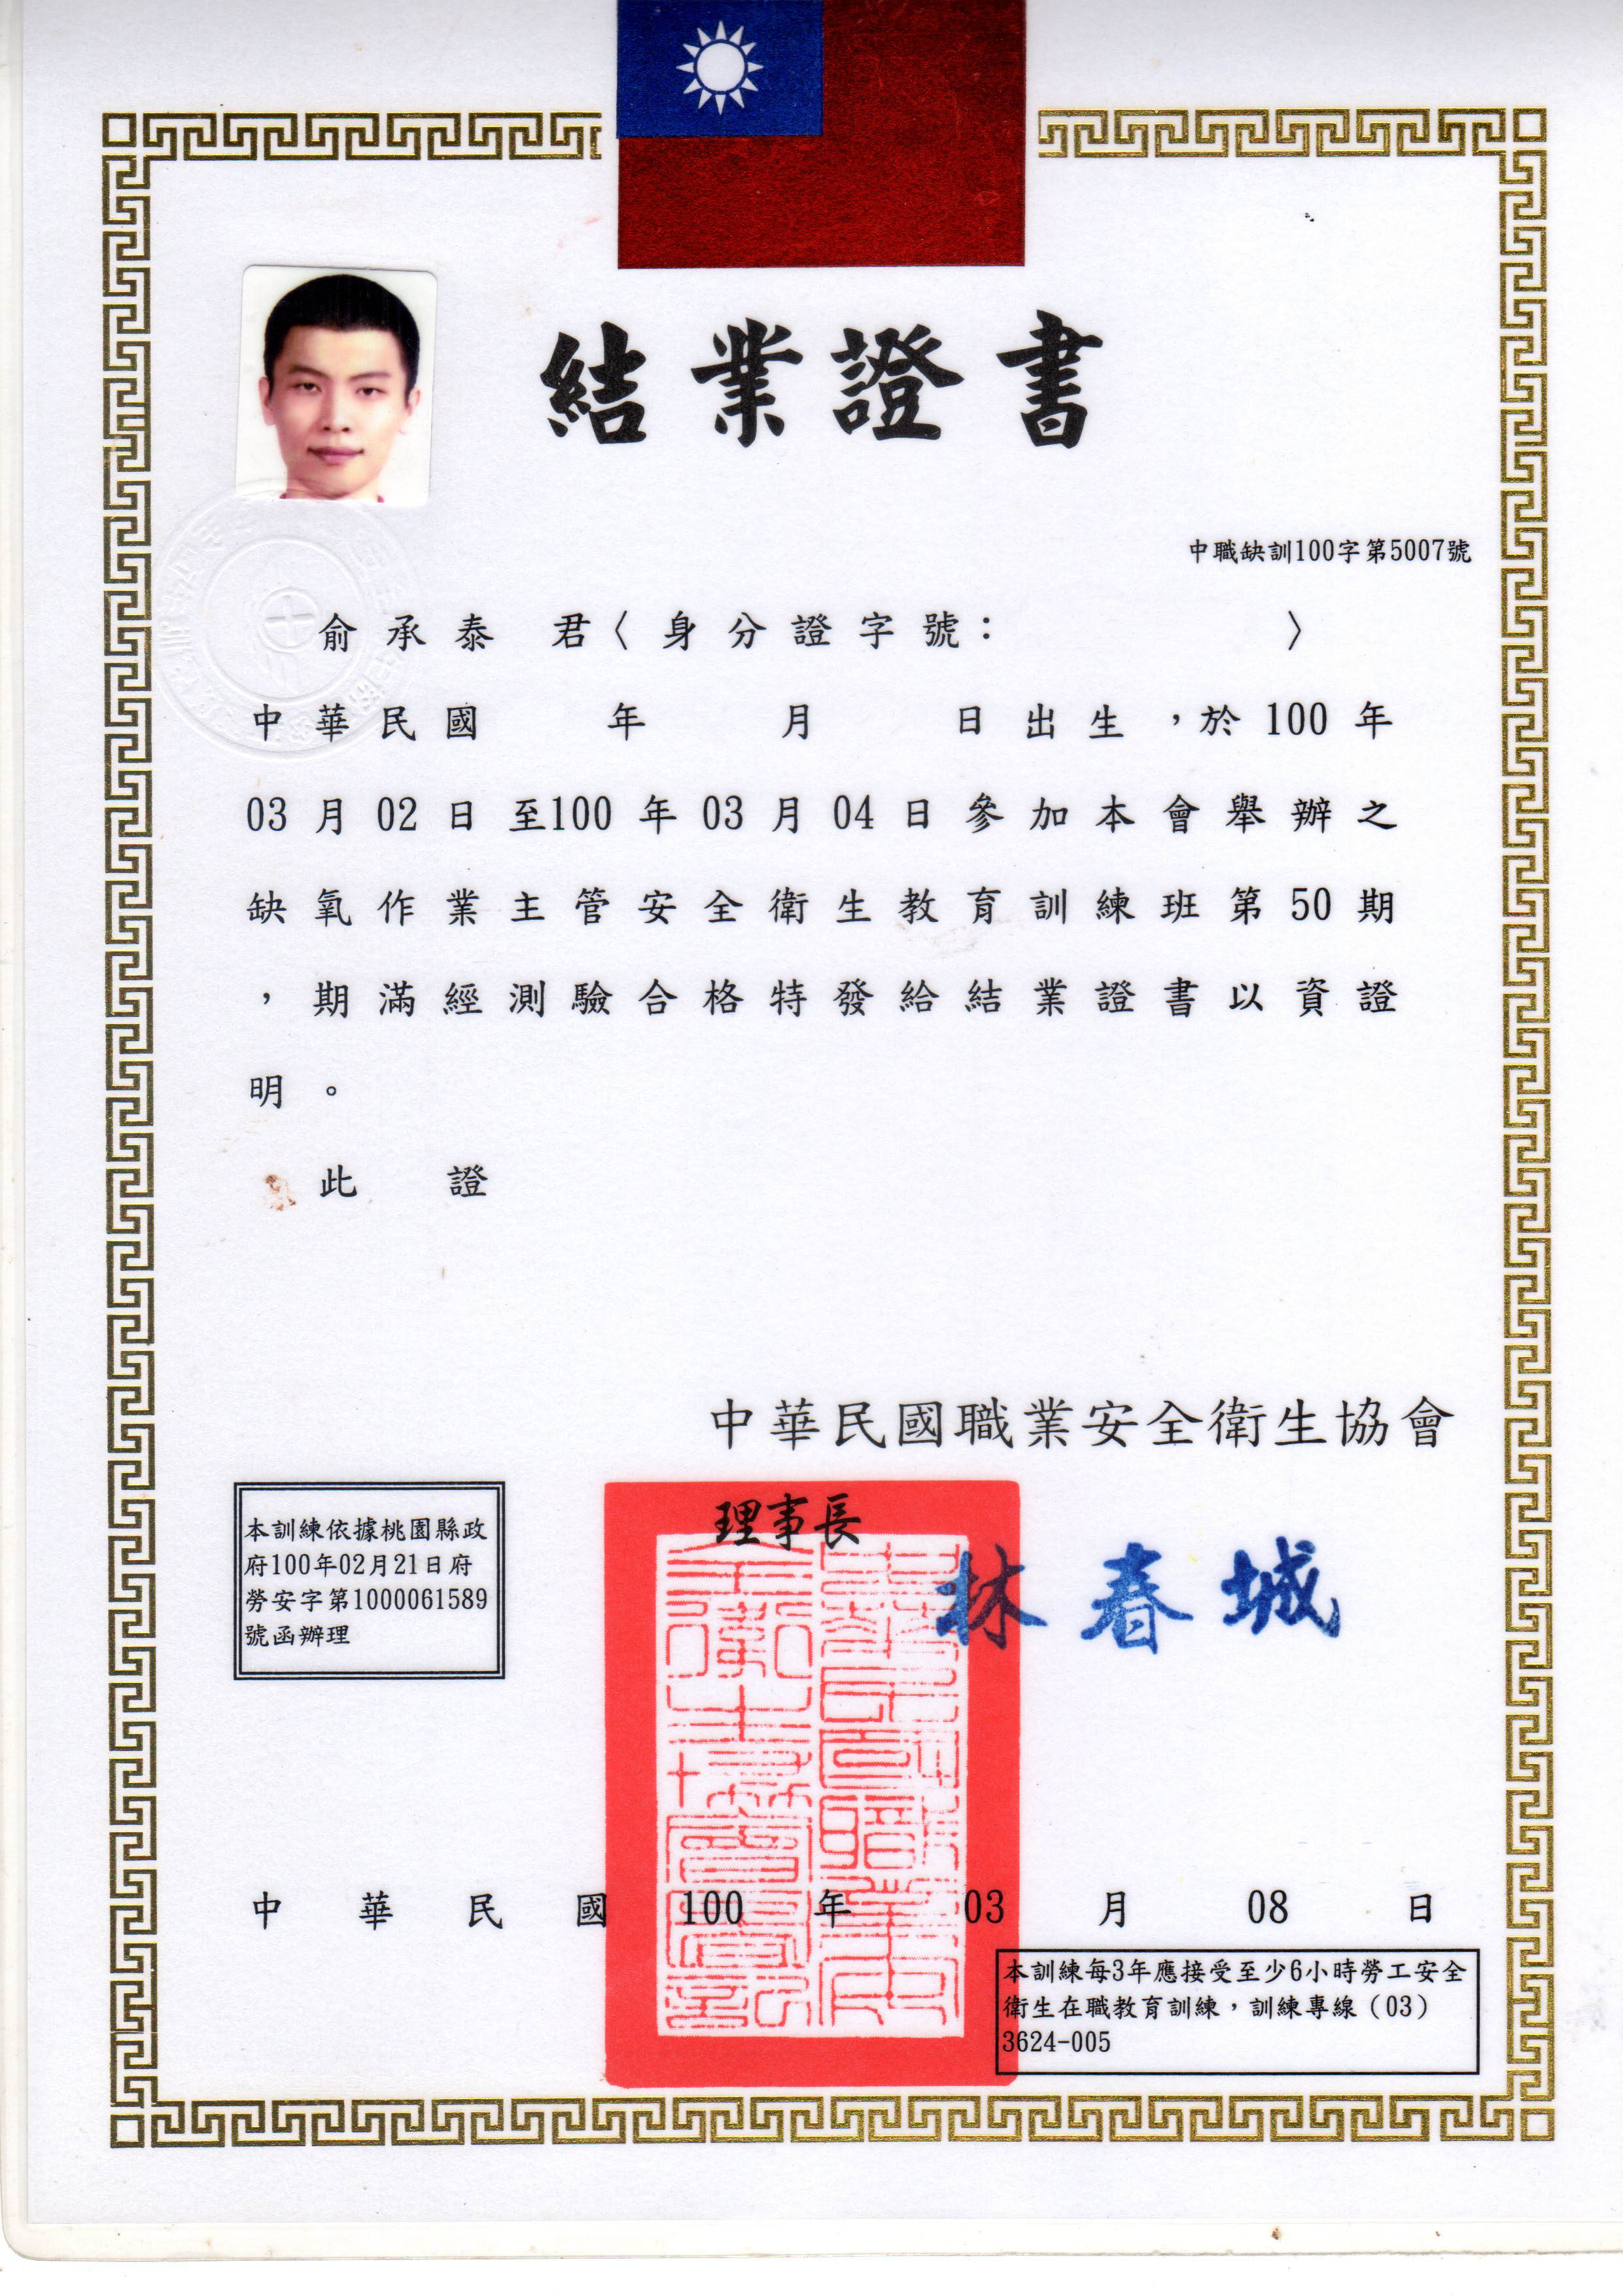 結業證書
中職缺訓100字第5007號
俞承泰 君〈身分證字號： 〉
中華民國 年 月 日出生，於100年
03月02日至100年03月04日參加本會舉辦之
缺氧作業主管安全衛生教育訓練班第50期
，期滿經測驗合格特發給結業證書以資證
明。
此 證
中華民國職業安全衛生協會
理事長
林春城
本訓練依據桃園縣政
府100年02月21日府
勞安字第1000061589
號函辦理
中華民國100年03月08日
本訓練每3年應接受至少6小時勞工安全
衛生在職教育訓練，訓練專線（03）
3624-005